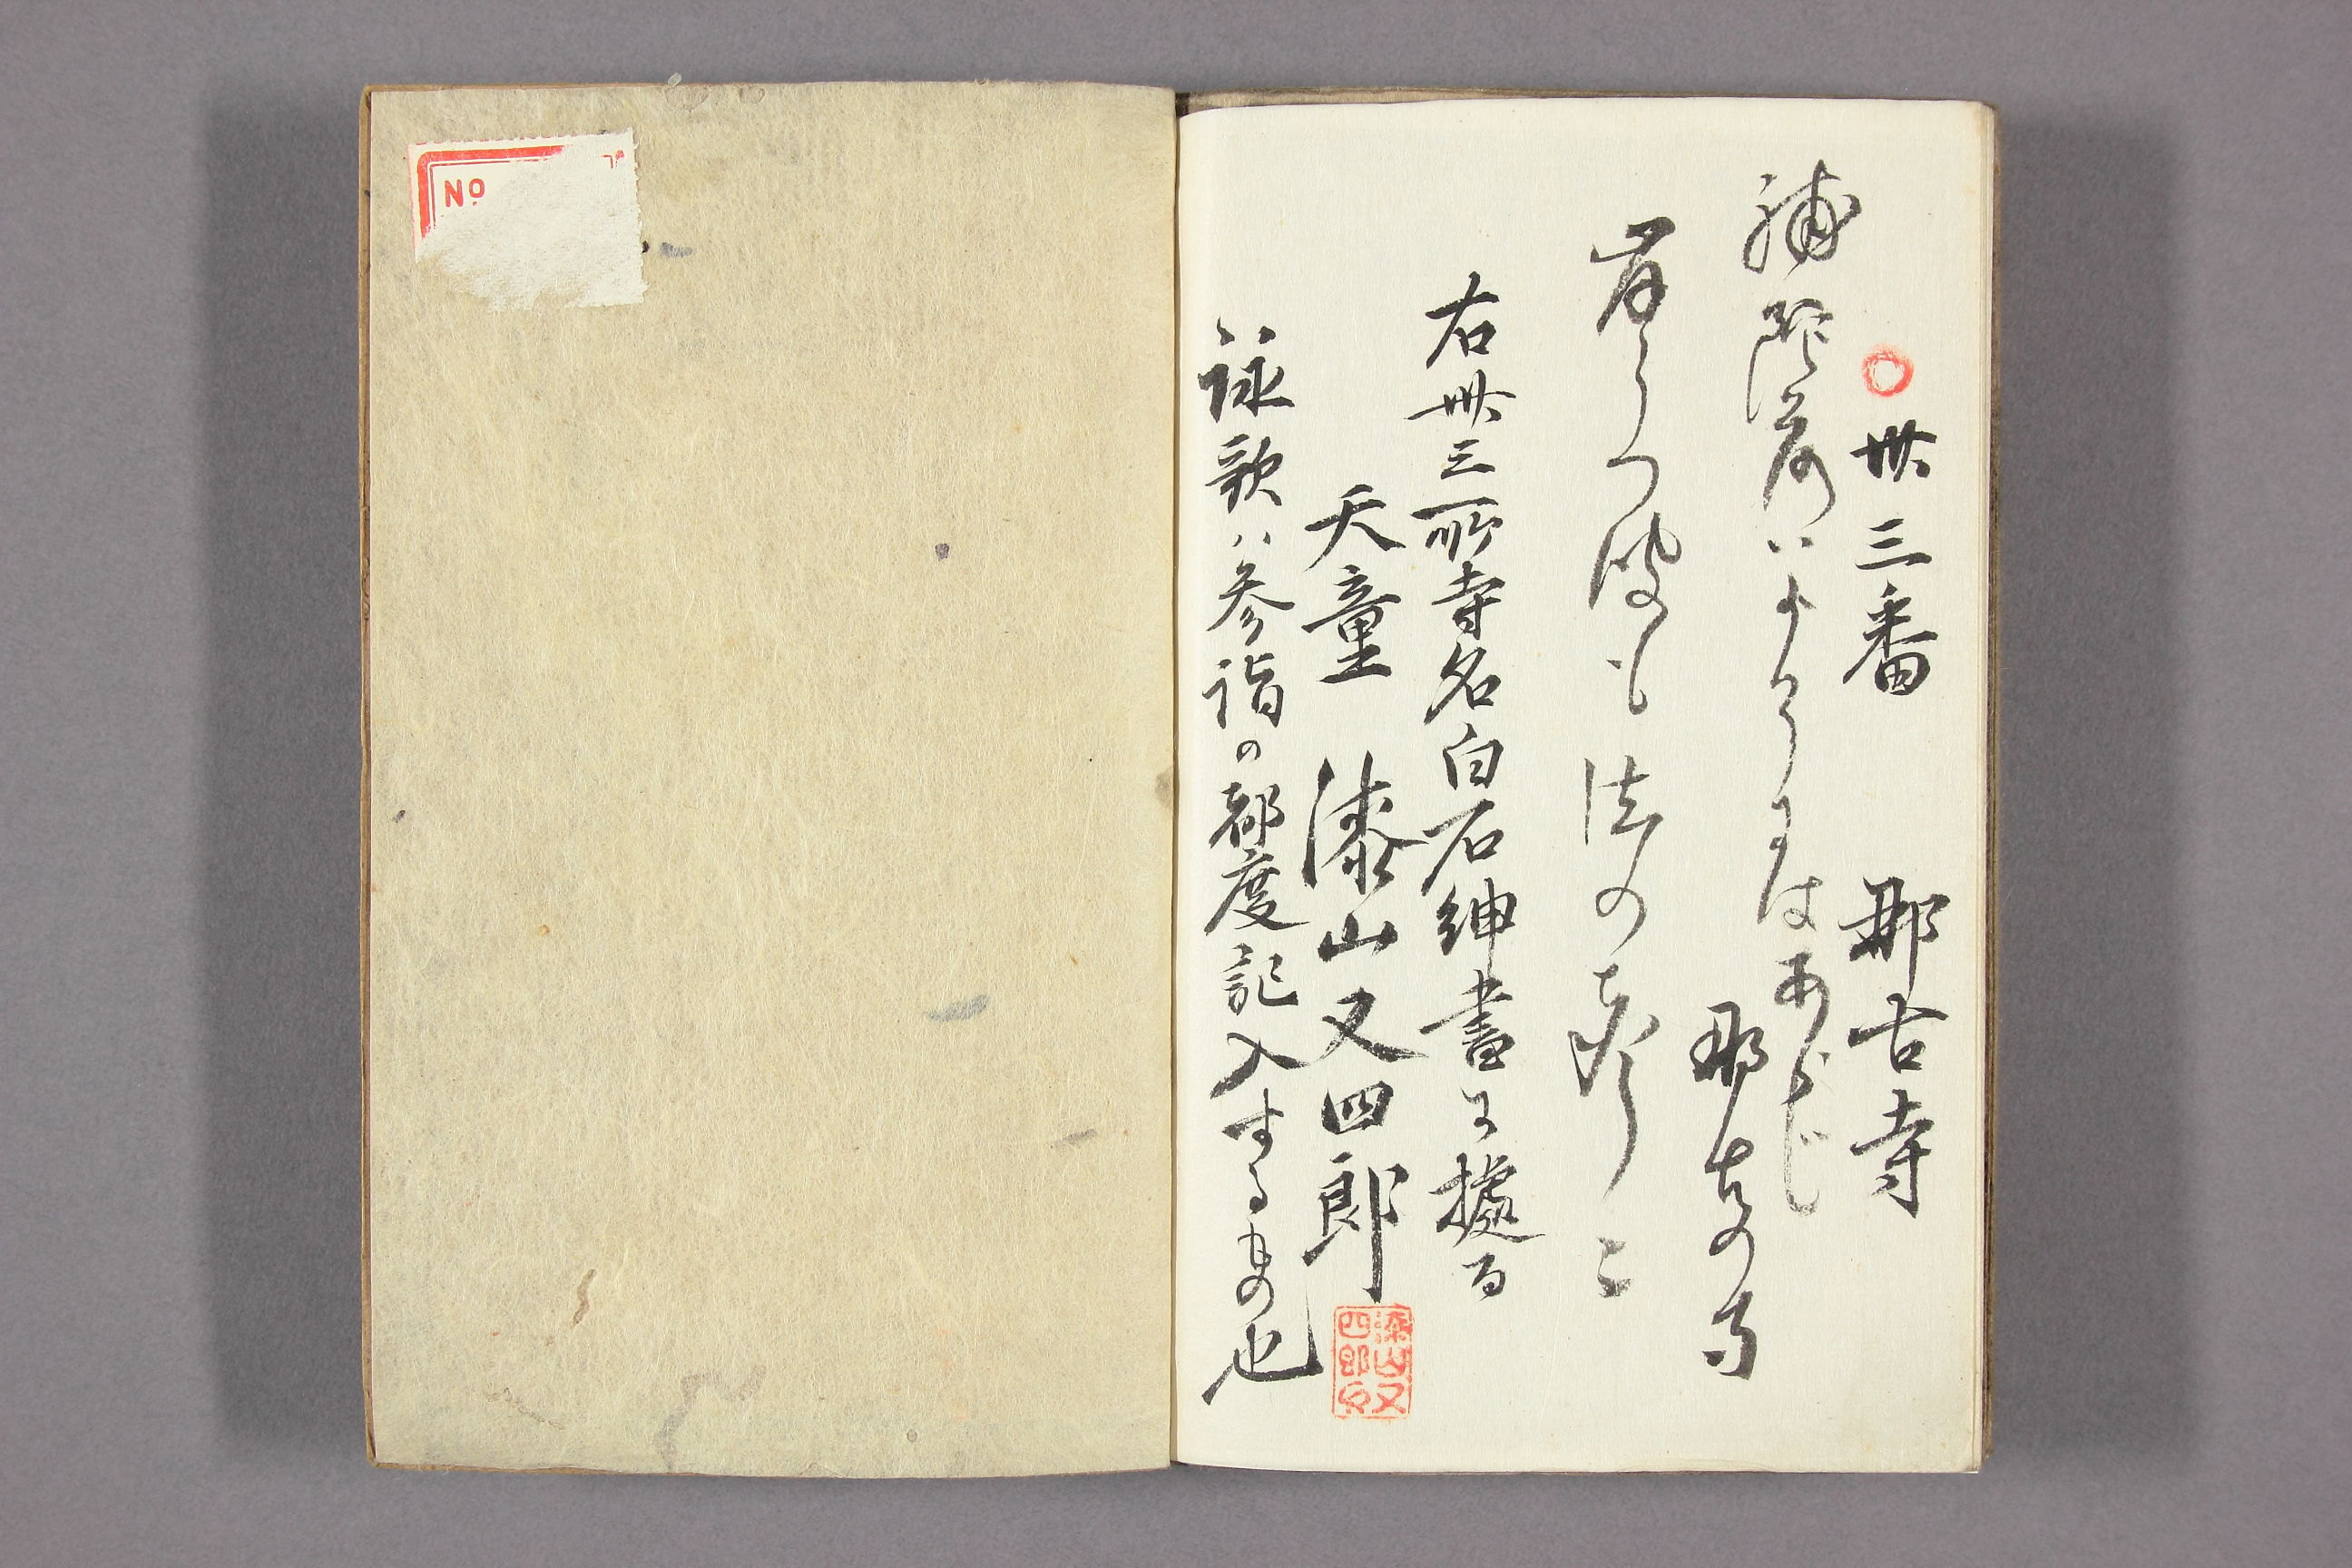 卅三番 那古寺
補陀落ハよそにはあらじ
那古の寺
岸うつ波も法の聲〻
右卅三所寺名白石紳書に據る
天童 漆山又四郎
漆山又
四郎印
詠歌ハ参詣の都度記入するもの也
No